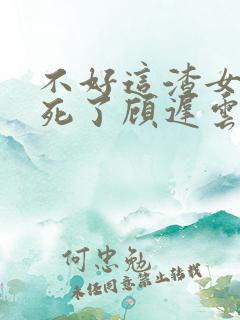 不好這渣女
死了顾遲雲
何忠勉
未经同意禁止转载